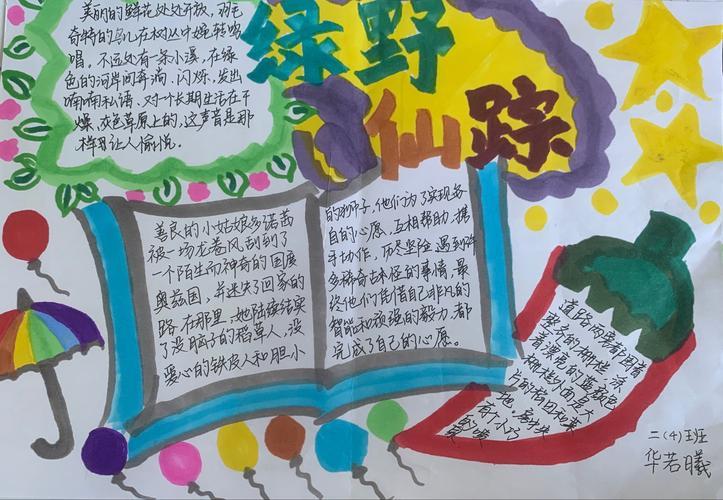 美丽的鲜花处处开放，羽毛
奇特的鸟儿在树丛中婉转鸣
唱。不远处有一条小溪，在绿
色的河岸间奔淌、闪烁，发出
喃喃私语。对一个长期生活在干
燥、灰色草原上的，这声音是那
样令让人愉悦。
绿野
仙踪
善良的小姑娘多诺茜
被一场龙卷风刮到了
一个陌生而神奇的国度
奥兹国，并迷失了回家的
路。在那里，她陆续结实
了没脑子的稻草人、没
爱心的铁皮人和胆小
的狮子，他们为了实现各
自的心愿，互相帮助，携
手协作，历尽坚险，遇到许
多稀奇古怪的事情，最
终他们凭借自己非凡的
智能和顽强的毅力，都
完成了自己的心愿。
道路两旁都围着
整名的栅栏，涂
着漂亮的蓝颜色
栅栏外面是大
片的稻田和菜
地。
二（4）班
华若曦